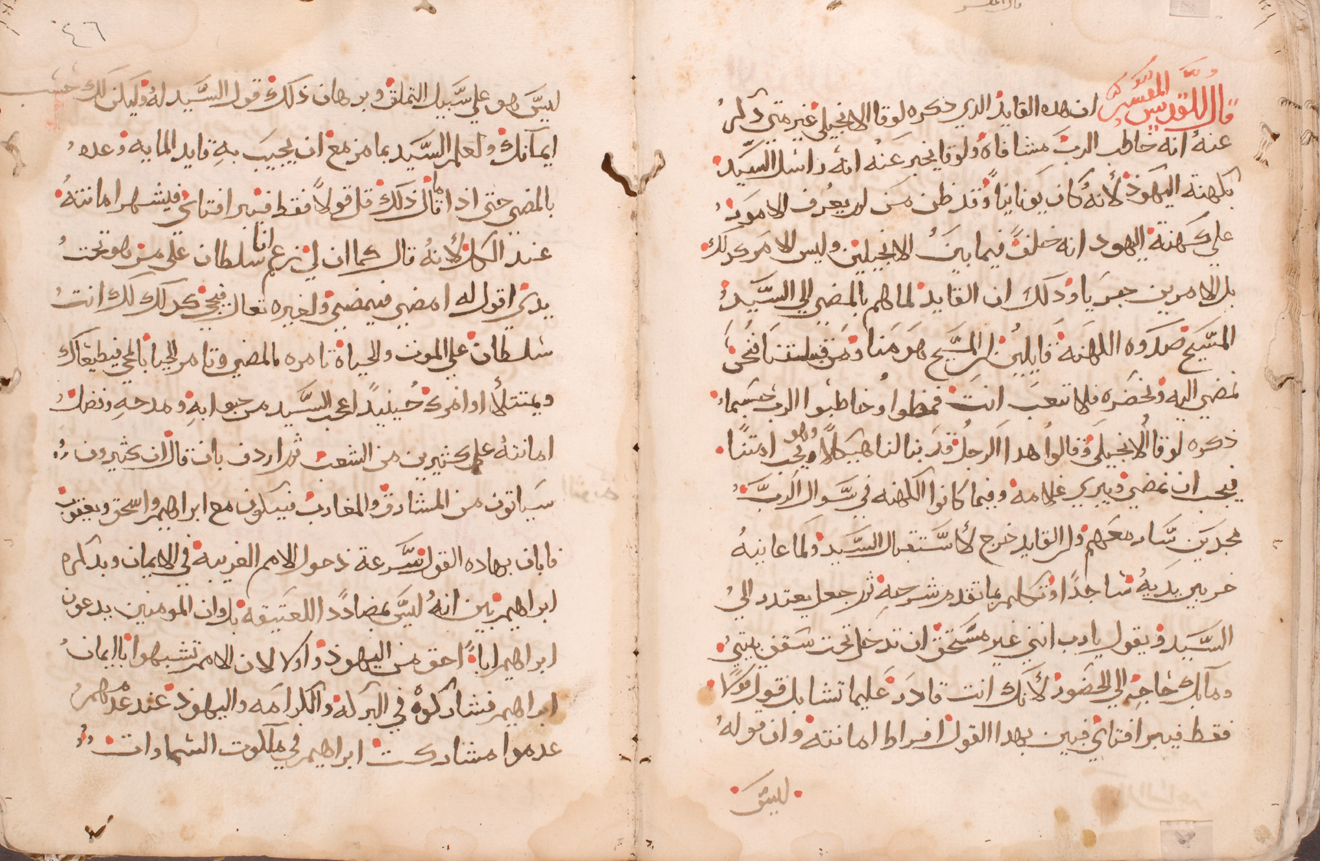 قال القديس المفسر ان هده القايد الدي دكره لوقا الانجيلي غير متي دكر
عنه انه خاطب الرب مشافاه ولوقا يخبر عنه انه راسل السيد
بكهنة اليهود لأنه كان يونانياً وقد ظن من لم يعرف الامور
علي كهنة اليهود انه خلف فيما بين الانجيلين وليس الامر كدلك
بل الامرين جريا ودلك ان القايد لما هم بالمضي الي السيد
المسيح صدوه الكهنة قايلين ان المسيح هو منا ومن قبيلتنا فنحن
نمضي اليه ونحضره فلا تتعب انت فمضوا وخاطبوا الرب حسبما
دكره لوقا الانجيلي وقالوا هدا الرجل قد بنا لنا هيكلاً وهو يحب امتنا
فيجب ان نمضي ويبري غلامه وفيما كانوا الكهنه في سوال الرب
مجدين سار معهم وان القايد خرج لأستقبال السيد ولما عاينه
خر بين يديه ساجداً وتكلم بما تقدم شرحه ثم جعل يعتدر الي
السيد ويقول يارب انني غير مستحق ان تدخل تحت سقف بيتي
ومالك حاجه الي الحضور لأنك انت قادر علي ما تشا بل قول قولاً
فقط فيبرا فتاي فبين بهدا القول افراط امانته وان قوله
ليس
٤٦
ليس هو علي سبيل التملق وبرهان دلك قول السيد له وليكن لك حسب
ايمانك ولعلم السيد بما زمع ان يجيب به قايد المايه وعده
بالمضي حتي ادا ما قال دلك قل قولاً فقط فيبرا فتاي فيشهر امانته
عند الكل لأنه قال كما ان لي زعم انا سلطان علي من هو تحت
يدي اقول له امضي فيمضي ولغيره تعال فيجي كدلك لك انت
سلطان علي الموت والحياة تامره بالمضي وتامر الحيا بالمجي فيطيعاك
ويمتتلأ اوامرك حينيداً اعجب السيد من جوابه ومدحه وفضل
امانته علي كثيرين من الشعب ثم اردف بان قال ان كثيرون
سياتون من المشارق والمغارب فيتكون مع ابراهيم واسحق ويعقوب
فابان بهاده القول سرعة دخول الامم الغريبه في الايمان وبدكره
ابراهيم بين انه ليس بمضادد العتيقه بل وان المومنين يدعون
ابراهيم اباً احق من اليهود واولا لان الامم تشبهوا باايمان
ابراهيم فشاركوه في البركه والكرامه واليهود عند عدمهم
عدموا مشاركت ابراهيم في ملكوت السماوات